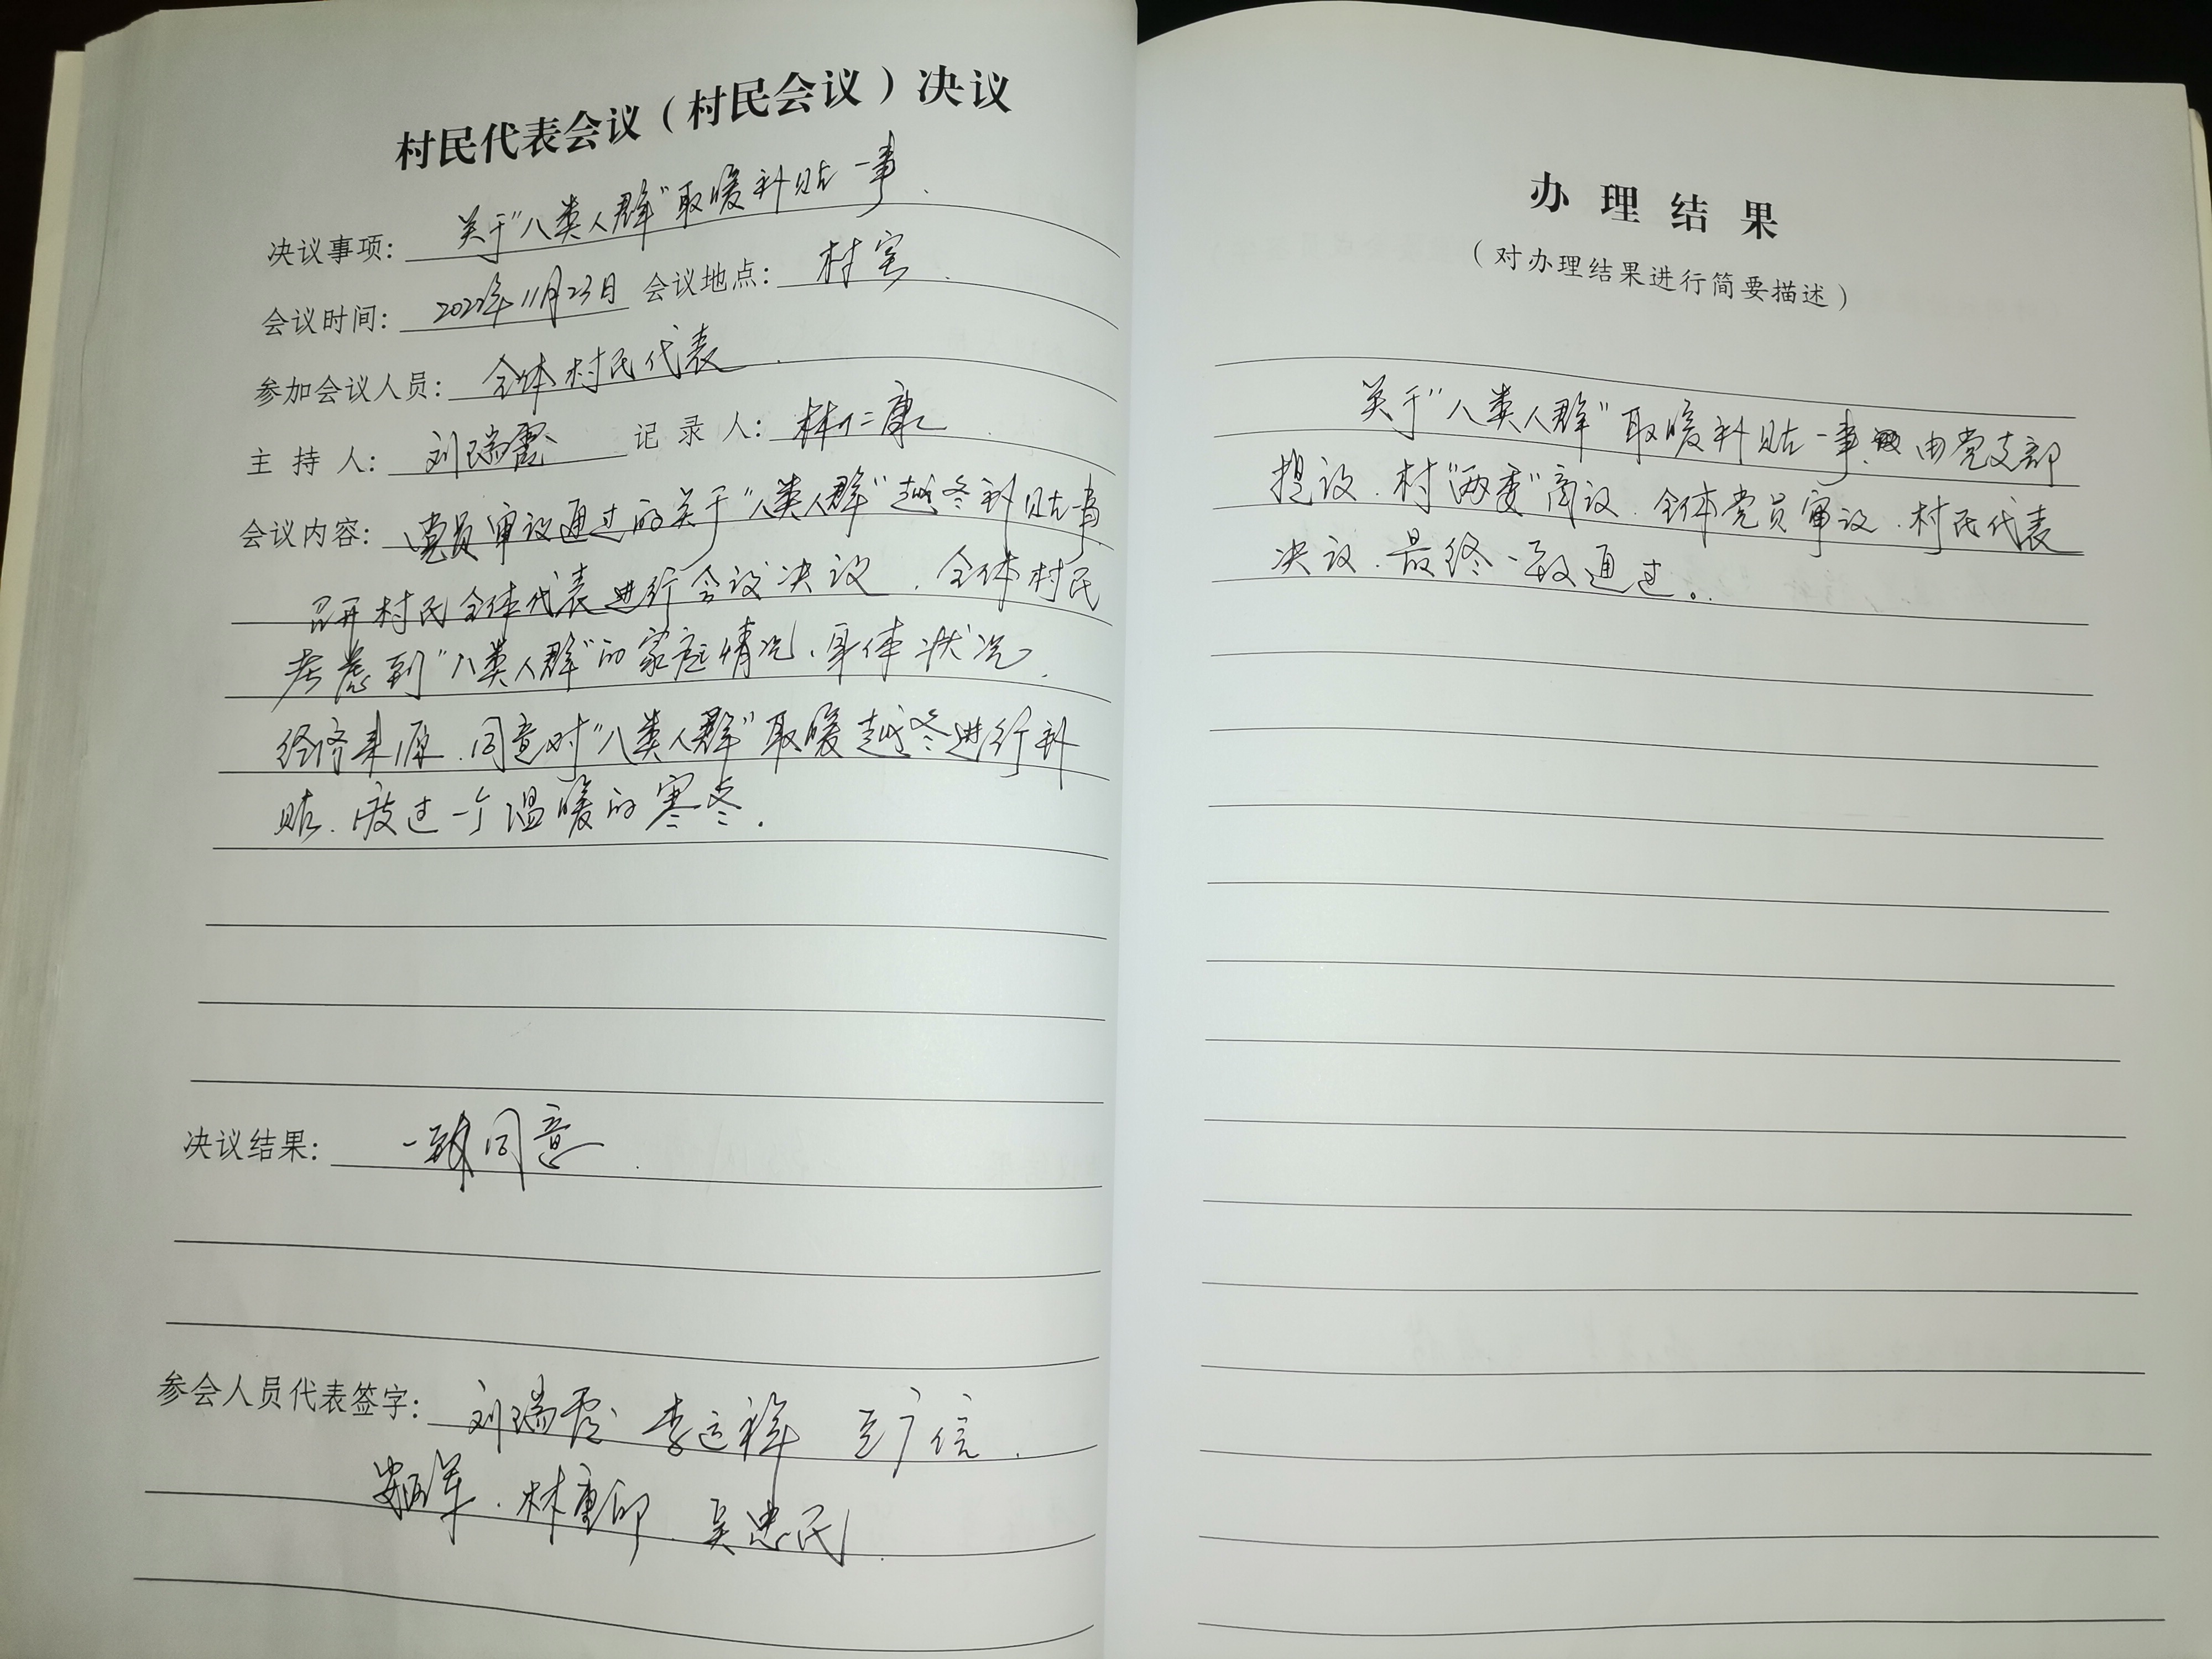 村民代表会议（村民会议）决议
决议事项: 关于"八类人群"取暖补贴一事.
会议时间: 2022年11月23日 会议地点: 村室.
参加会议人员: 全体村民代表.
主持人: 刘瑞霞 记录人: 林仁康
会议内容: 党员审议通过的关于"八类人群"越冬补贴一事
召开村民全体代表进行会议决议.全体村民
考虑到"八类人群"的家庭情况、身体状况.
经济来源.同意对"八类人群"取暖越冬进行补
贴.度过一个温暖的寒冬.
决议结果: 一致同意.
参会人员代表签字: 刘瑞霞 李运祥 广信.
林重阳.吴忠民.
办理结果
（对办理结果进行简要描述）
关于"八类人群"取暖补贴一事.由党支部
提议.村"两委"商议.全体党员审议.村民代表
决议.最终一致通过。